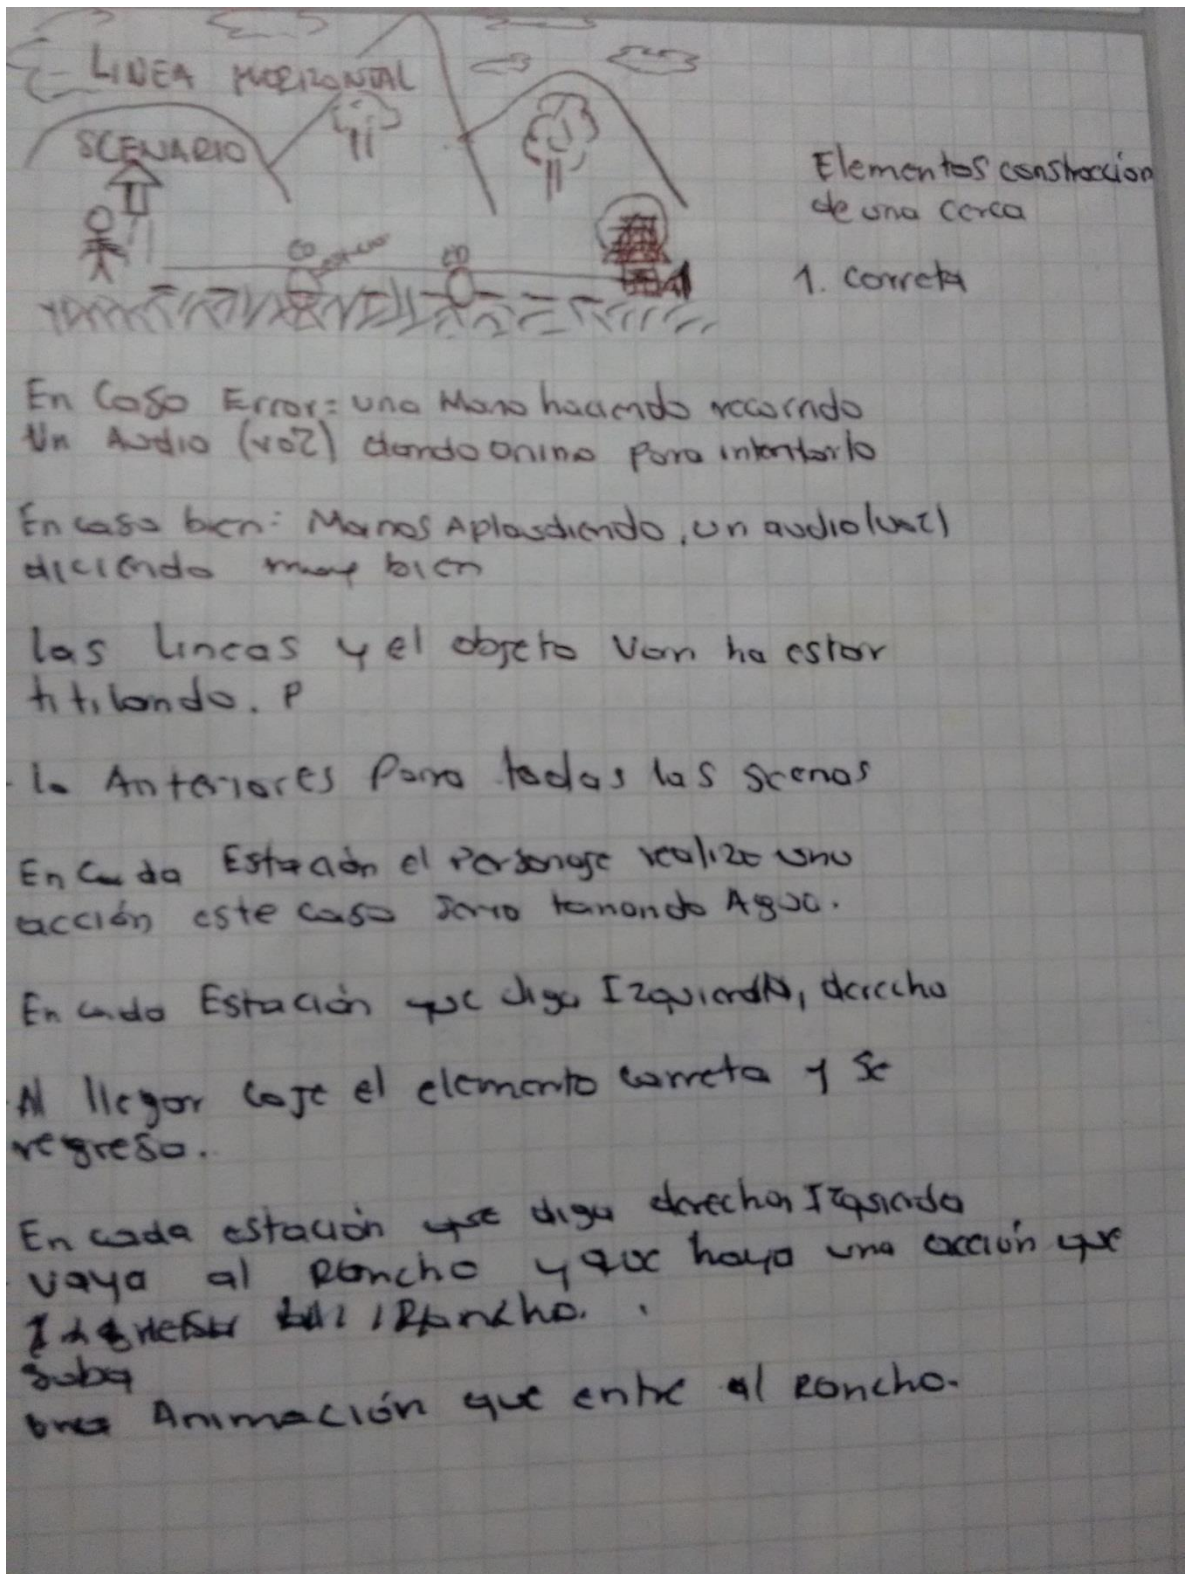 LINEA HORIZONTAL
SCENARIO
Elementos construccion
de una cerca
1. correta
En Caso Error: una Mano haciendo recorrido
Un Audio (voz) dando animo para intentarlo
En caso bien: Manos Aplaudiendo, un audio (voz)
diciendo muy bien
las lineas y el objeto Van ha estar
titilando. P
lo Anteriores Para todas las scenas
En Cada Estación el Personaje realize una
acción este caso seria tomando Agua.
En cada Estación que diga Izquierda, derecha
Al llegar coje el elemento carreta y se
regresa.
En cada estación que diga derecha Izquierda
vaya al Rancho y que haya una acción que
Rancho.
suba
una Animación que entre al Rancho.